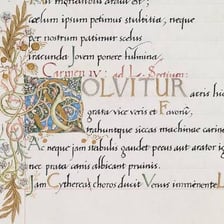 cælum ipsum petimus stultitia, neque
per nostrum patimur scelus
Iracunda Jovem ponere fulmina.
Carmen IV: ad L. Sestium.
SOLVITUR acris hie
grata vice veris et Favonî,
Trahuntque siccas machinae carina
Ac neque jam stabulis gaudet pecus aut arator ig
nec prata canis albicant pruinis.
Jam Cytherea choros ducit Venus imminente L